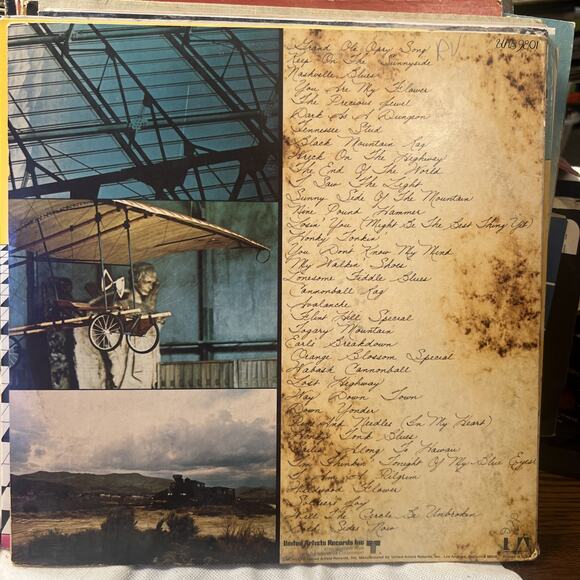 UAS 9801
Grand Ole Opry Song
Keep On The Sunnyside
Nashville Blues
You Are My Flower
The Precious Jewel
Dark As A Dungeon
Tennessee Stud
Black Mountain Rag
Wreck On The Highway
The End Of The World
I Saw The Light
Sunny Side Of The Mountain
Nine Pound Hammer
Losin' You (Might Be The Best Thing Yet)
Honky Tonkin'
You Dont Know My Mind
My Walkin' Shoes
Lonesome Fiddle Blues
Cannonball Rag
Avalanche
Flint Hill Special
Togary Mountain
Earl's Breakdown
Orange Blossom Special
Wabash Cannonball
Lost Highway
Way Down Town
Down Yonder
Pins And Needles (In My Heart)
Honky Tonk Blues
Sailin' Along To Hawaii
I'm Thinkin' Tonight Of My Blue Eyes
I Am A Pilgrim
Wildwood Flower
Soldier's Joy
Will The Circle Be Unbroken
Both Sides Now
United Artists Records Inc
UA